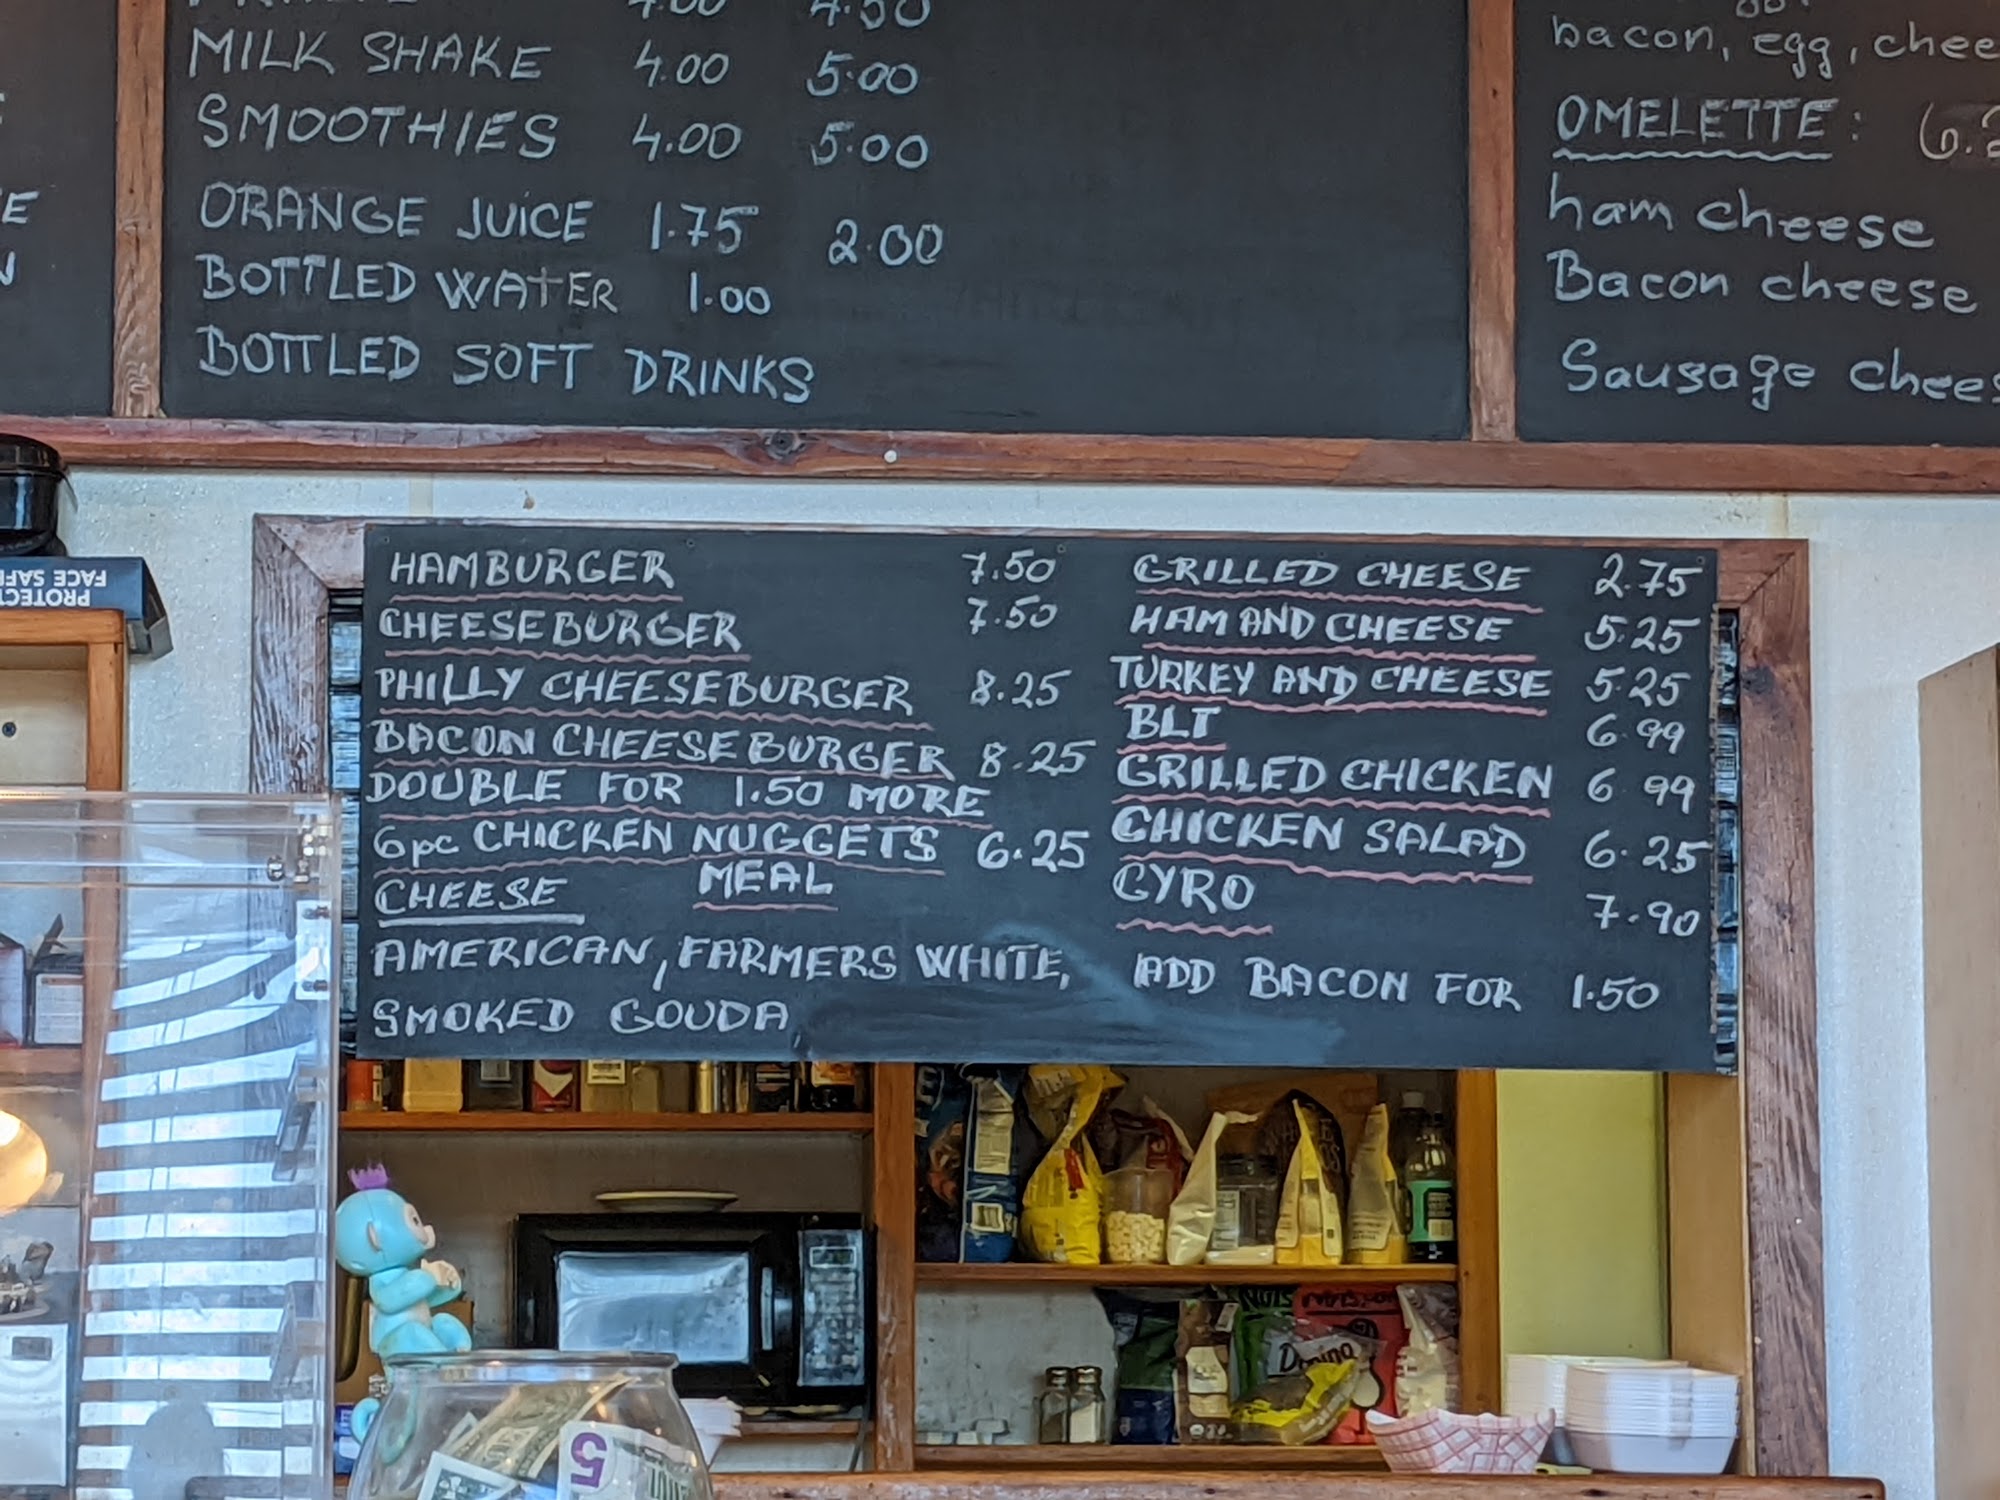 4.00 4.50
MILK SHAKE 4.00 5.00
SMOOTHIES 4.00 5.00
ORANGE JUICE 1.75 2.00
BOTTLED WATER 1.00
BOTTLED SOFT DRINKS
bacon, egg, chee
OMELETTE: 6.2
ham cheese
Bacon cheese
Sausage chees
HAMBURGER 7.50
CHEESEBURGER 7.50
PHILLY CHEESEBURGER 8.25
BACON CHEESEBURGER 8.25
DOUBLE FOR 1.50 MORE
6pc CHICKEN NUGGETS 6.25
MEAL
CHEESE
AMERICAN, FARMERS WHITE,
SMOKED GOUDA
GRILLED CHEESE 2.75
HAM AND CHEESE 5.25
TURKEY AND CHEESE 5.25
BLT 6.99
GRILLED CHICKEN 6.99
CHICKEN SALAD 6.25
GYRO 7.90
ADD BACON FOR 1.50
FACE SAFE
PROTECT
Domino
5